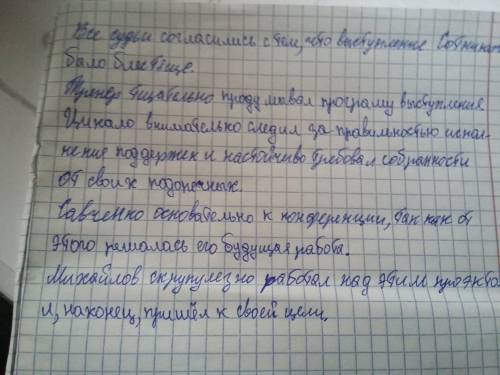 Все судьи согласились с тем, что выступление
было блестяще.
Тренер тщательно продумывал програму выступления
Цикало внимательно следил за правильностью испол-
нение поддержек и настойчиво требовал собранности
от своих подопечных.
Савченко основательно к конференции, так как от
этого решалась его будущая работа.
Михайлов скрупулезно работал над этим
и, наконец, пришёл к своей цели.